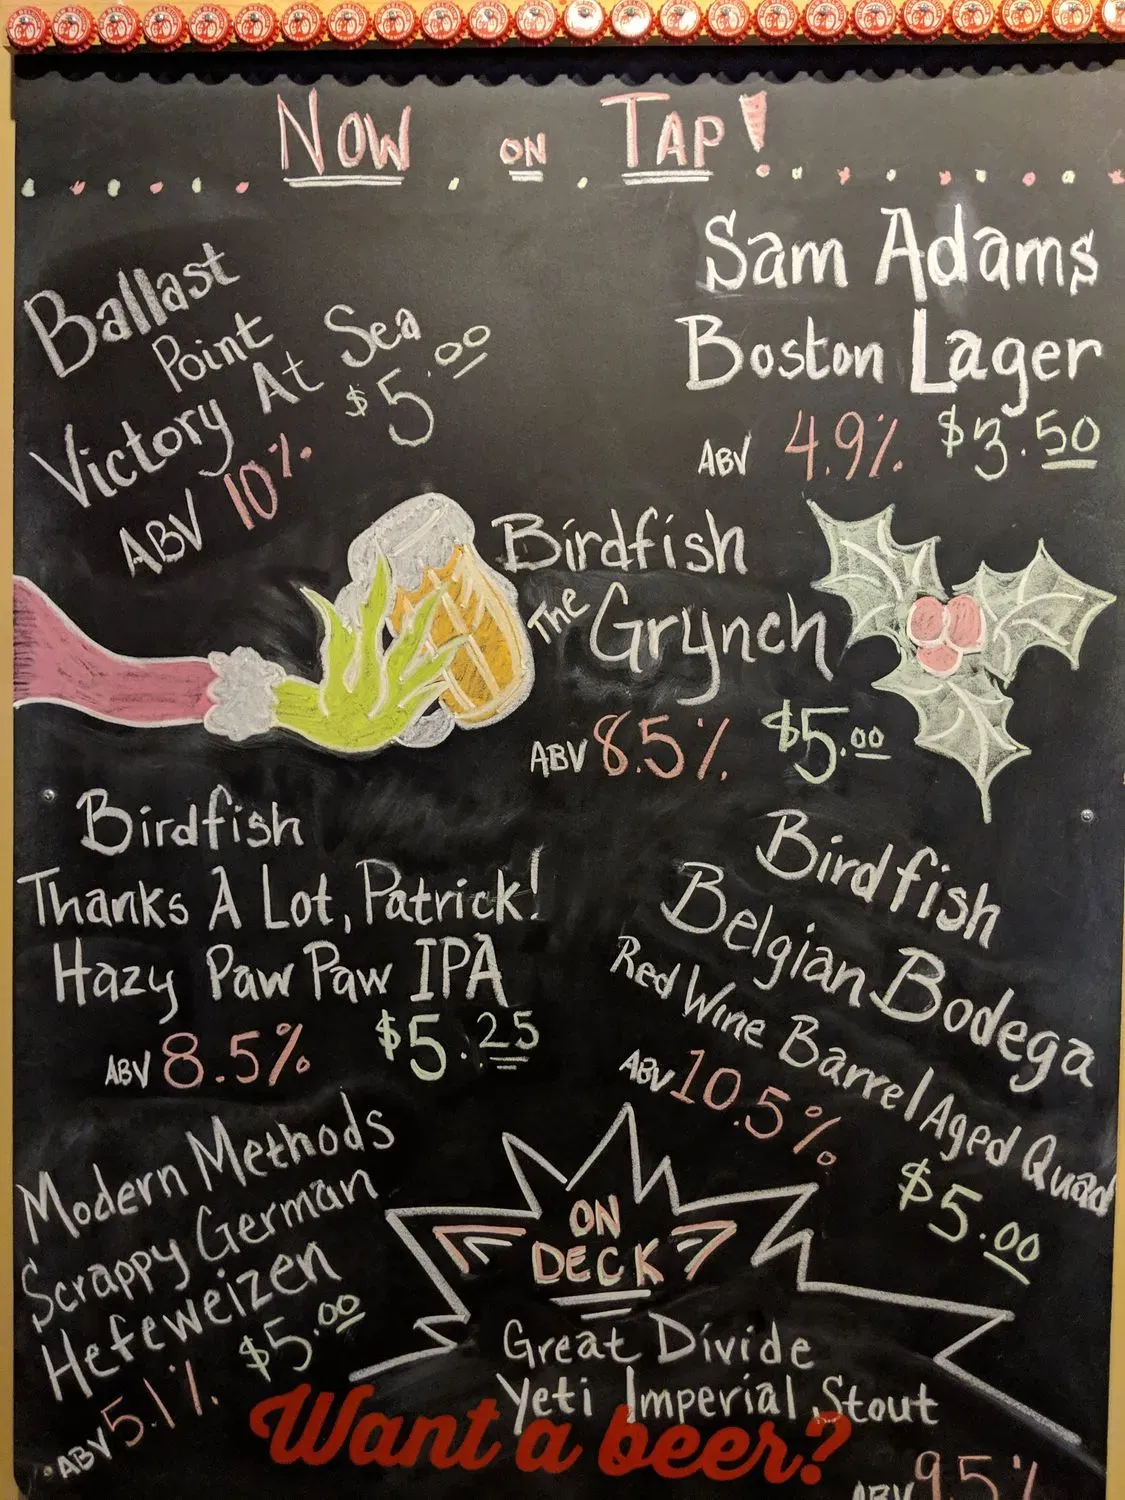 NOW ON TAP!
Ballast
Point
Victory At Sea
ABV 10% $5.00
Sam Adams
Boston Lager
ABV 4.9% $3.50
Birdfish
The Grynch
ABV 8.5% $5.00
Birdfish
Thanks A Lot, Patrick!
Hazy Paw Paw IPA
ABV 8.5% $5.25
Birdfish
Belgian Bodega
Red Wine Barrel Aged Quad
ABV 10.5% $5.00
Modern Methods
Scrappy German
Hefeweizen
ABV 5.1% $5.00
ON
DECK
Great Divide
Yeti Imperial Stout
Want a beer?
ABV 9.5%